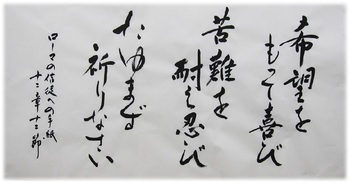 希望を
もって喜び
苦難を
耐え忍び
たゆまず
祈りなさい
ローマの信徒への手紙
十二章十二節